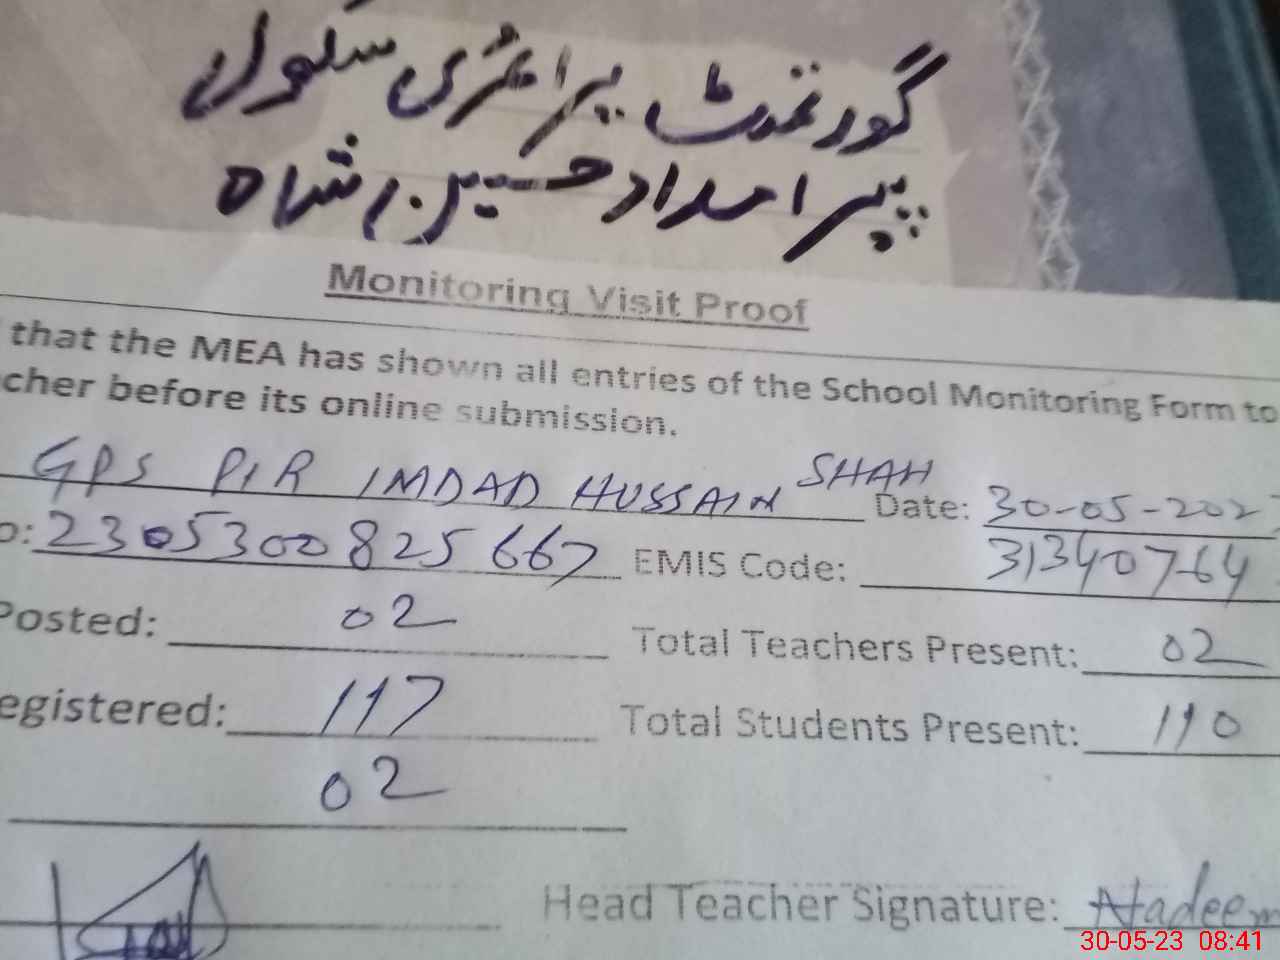 گورنمنٹ پرائمری سکول
پیر امداد حسین شاہ
Monitoring Visit Proof
that the MEA has shown all entries of the School Monitoring Form to
cher before its online submission.
GPS PIR IMDAD HUSSAIN SHAH Date: 30-05-202
o: 2305300825667 EMIS Code: 31340764
Posted: 02 Total Teachers Present: 02
egistered: 117 Total Students Present: 110
02
Head Teacher Signature: Nadeem
30-05-23 08:41